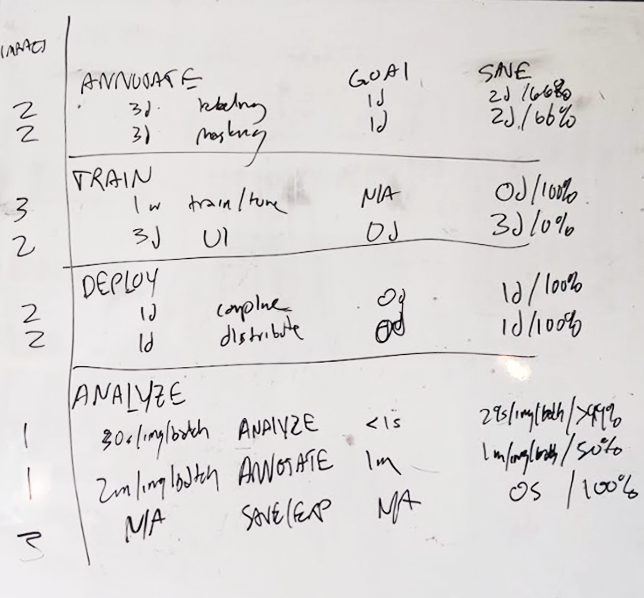 IMPACT
ANNOTATE GOAL SAVE
2 3d labeling 1d 2d/66%
2 3d masking 1d 2d/66%
TRAIN
3 1w train/tune N/A 0d/100%
2 3d UI 0d 3d/0%
DEPLOY
2 1d compline 0d 1d/100%
2 1d distribute 0d 1d/100%
ANALYZE
1 30s/img/batch ANALYZE <1s 29s/img/bath/>99%
1 2m/img/batch ANNOTATE 1m 1m/img/bath/50%
3 N/A SAVE/EXP N/A 0S /100%